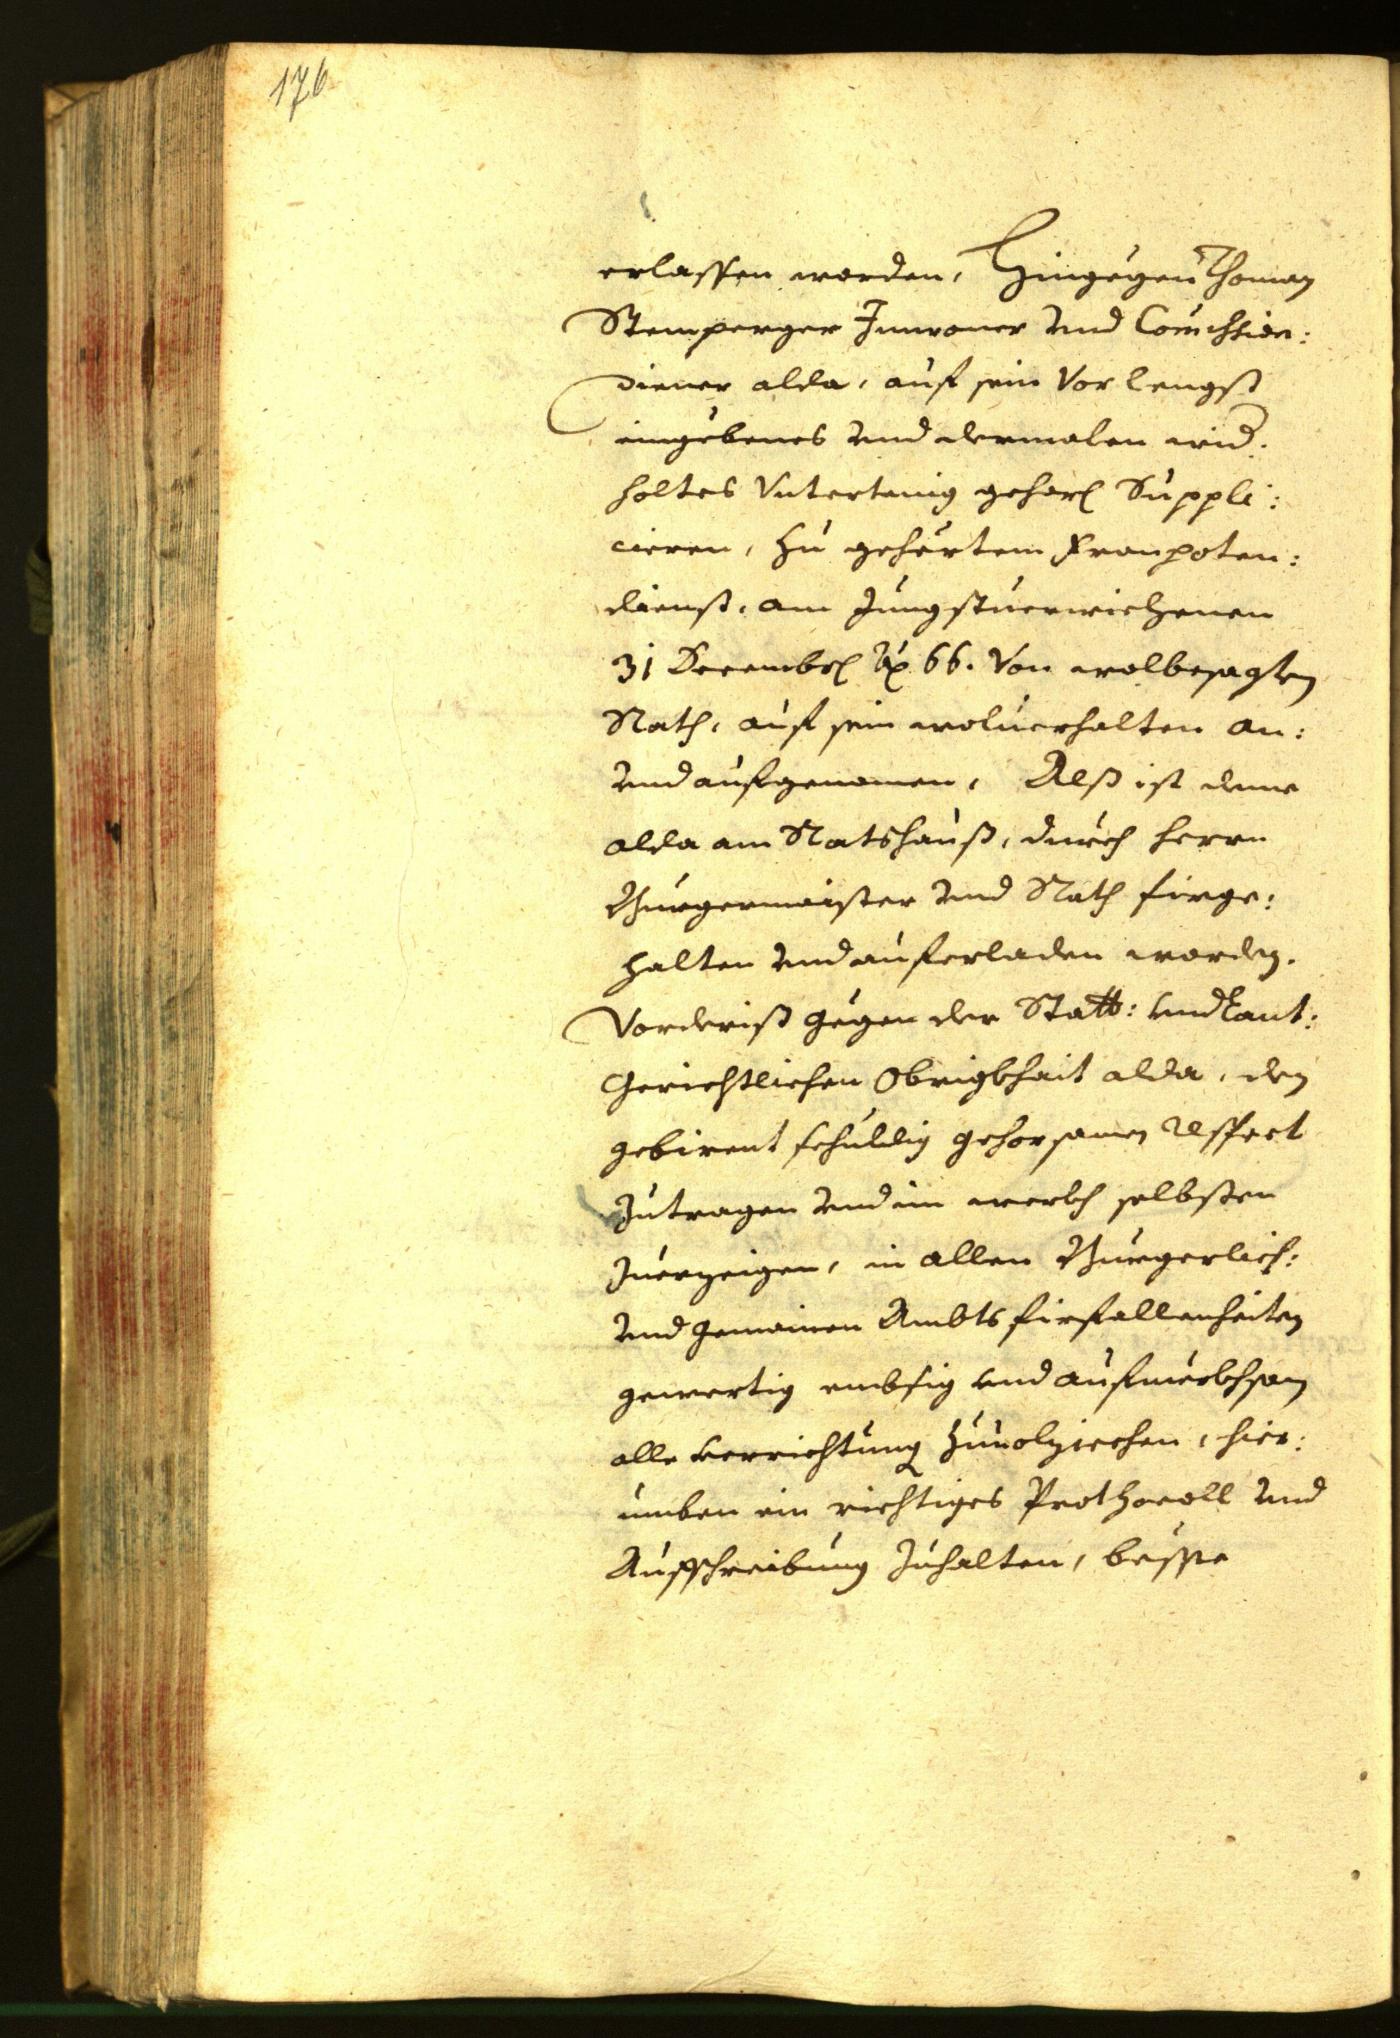 176
erlassen worden, Hingegen Thoman
Stemperger Inwoner vnd
diener alda, auf sein Vor lengst
eingebenes vnd dermalen wid:
holtes Vntertenig gehors Suppli:
cieren, zu gehörtem Fronpoten:
dienst, am Jungstuerwichenen
31 Decembris Ao 66. Von wolbesagten
Rath, auf sein woluerhalten an:
vnd aufgenomen, Alß ist deme
alda am Ratshauß, durch herrn
Burgermaister vnd Rath firge:
halten vnd auferladen worden.
Vorderist gegen der Statt: vnd Lant:
Gerichtlichen Obrigkhait alda, den
gebirent schuldig gehorsamen respect
zutragen vnd im werkh selbsten
zuerzeigen, in allen Burgerlich:
vnd gemainen Ambts firfallenheiten
gewertig embsig vnd aufmerkhsam
alle verrichtung zuuolziechen, hier:
umben ein richtiges Prothocoll vnd
Aufschreibung zuhalten,